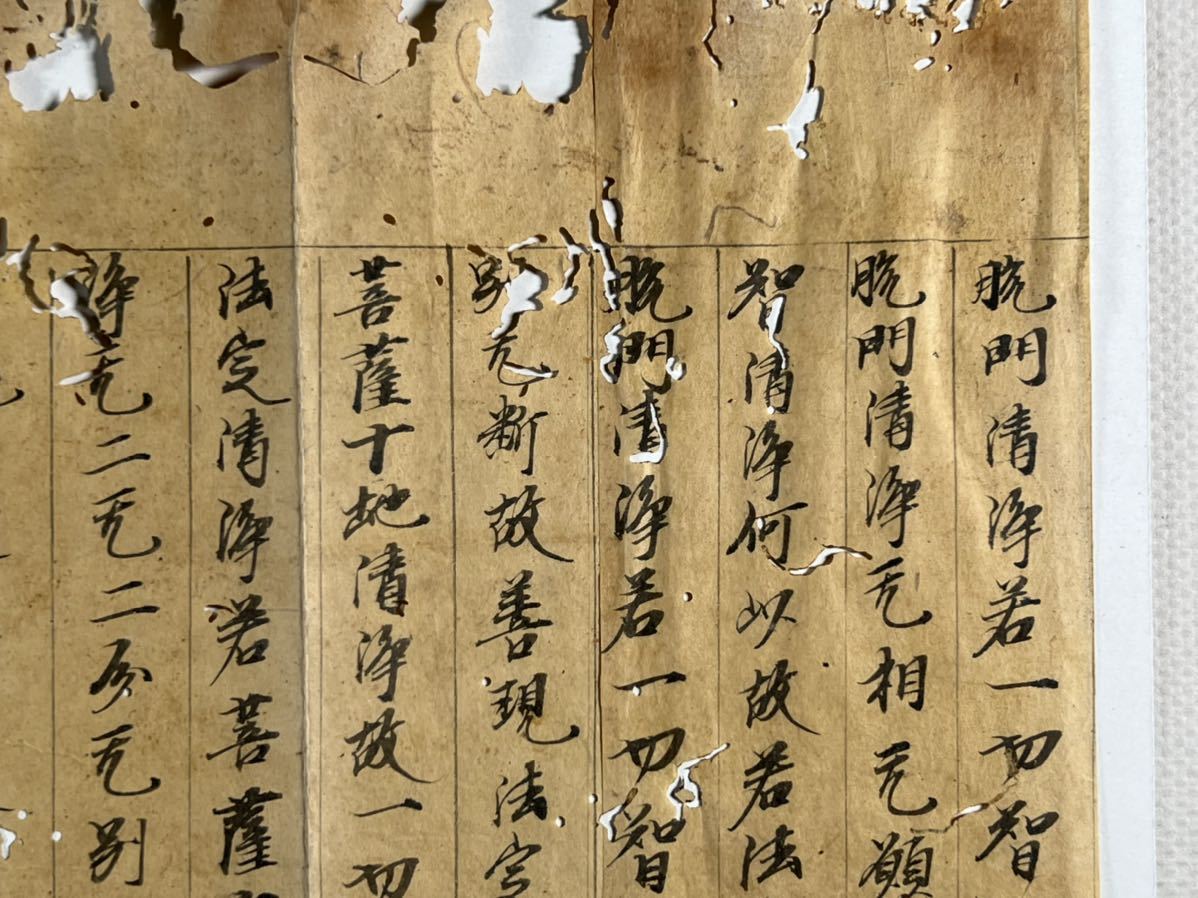 脱門清淨若一切智
脱門清淨无相无願
智清淨何以故若法
脱門清淨若一切智
別无斷故善現法定
菩薩十地清淨故一切
法定清淨若菩薩
淨无二无二分无別